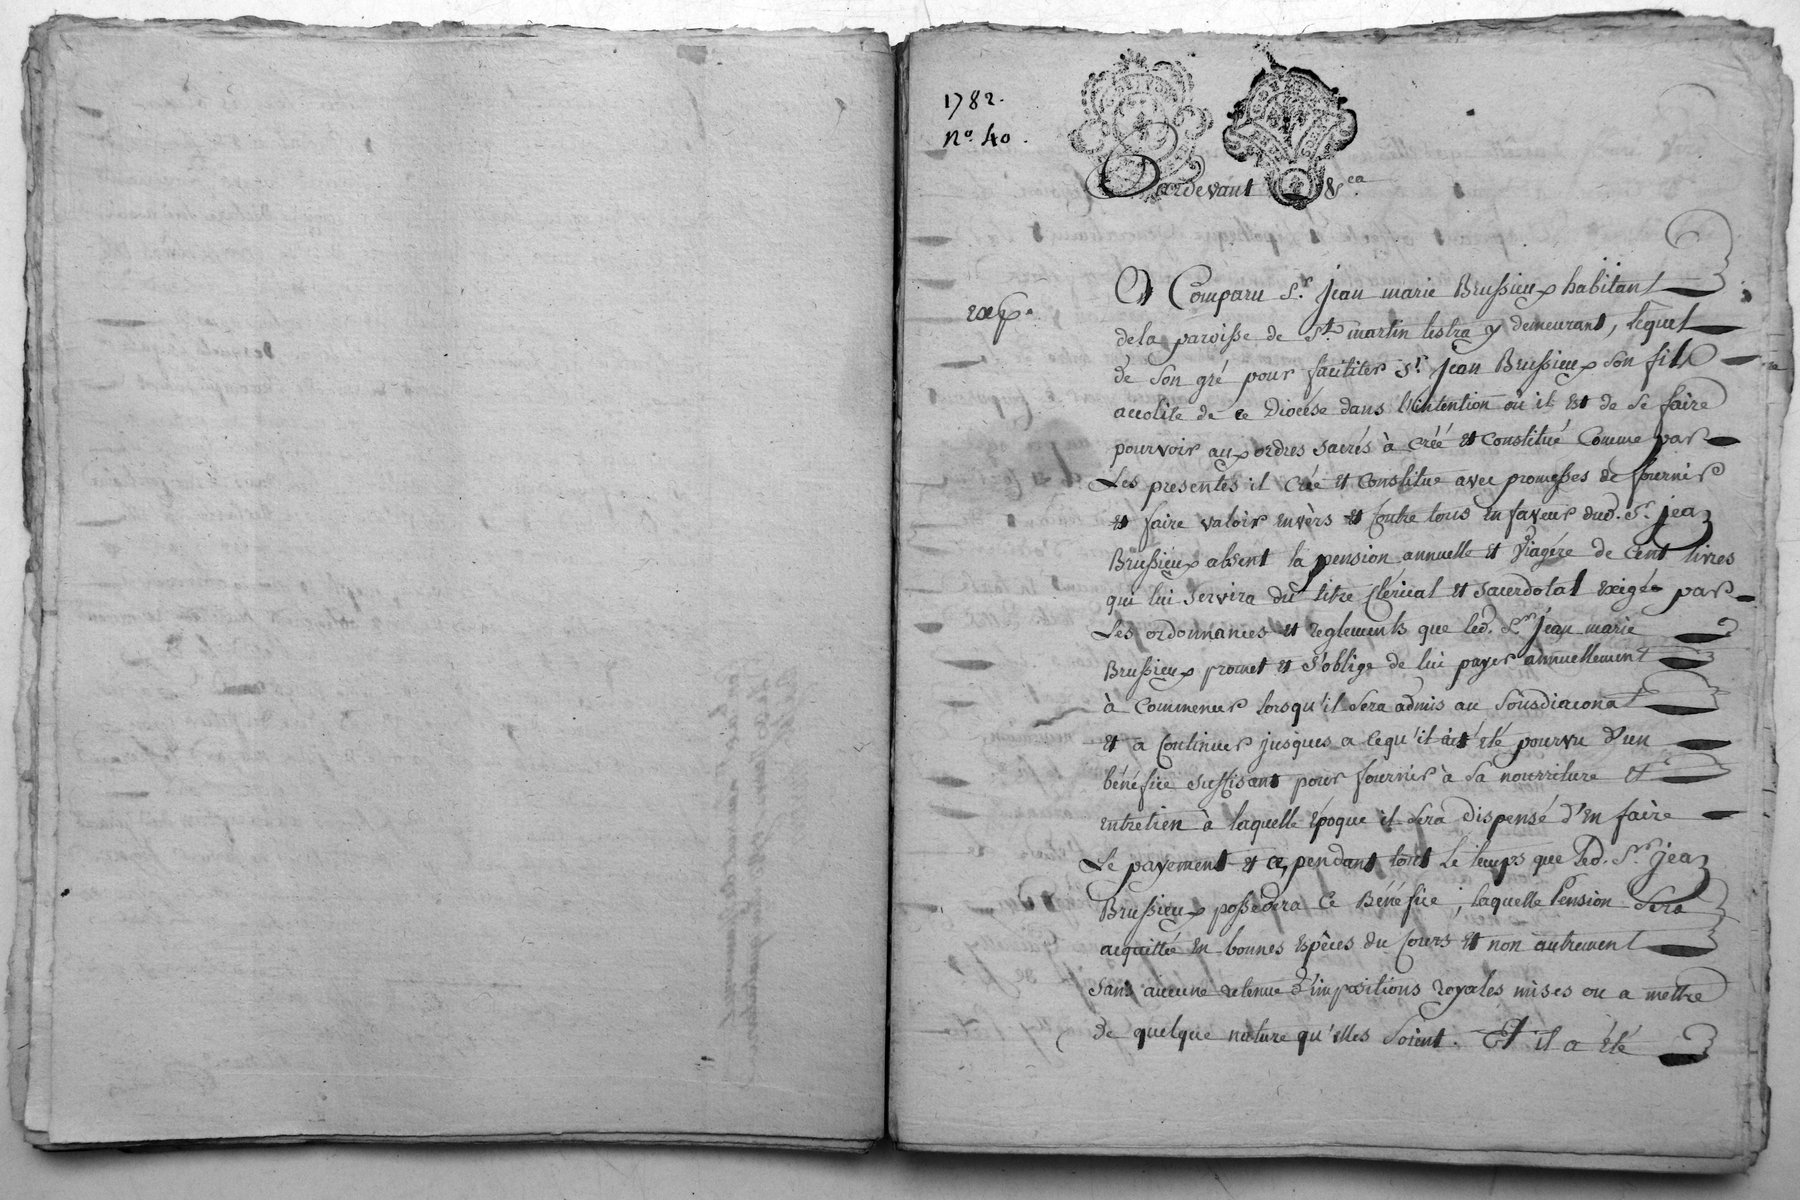 1782.
N.o 40.
Pardevant &.ca
exp.e
A Comparu S.r jean marie Brussieux habitant
de la paroisse de S.t martin lestra y demeurant, lequel
de son gré pour faciliter S.r jean Brussieux son fils
accolite de ce Diocése dans l'intention où il est de se faire
pourvoir aux ordres sacrés à créé et constitué Comme par
Les presentes il Crée et Constitue avec promesses de fournir
et faire valoir envèrs et Contre tous en faveur dud. S.r jean
Brussieux absent la pension annuelle et Viagére de Cent livres
qui lui servira du titre Clérical et sacerdotal exigé par
Les ordonnances et reglements que led. S.r jean marie
Brussieux promet et s'oblige de lui payer annuellement
à Commencer lorsqu'il sera admis au sousdiaconat
et a Continuer jusques a ce qu'il ait été pourvu d'un
bénéfice suffisant pour fournir à sa nourriture et
entretien à laquelle époque il sera dispensé d'en faire
Le payement et ce, pendant tout le temps que led. S.r jean
Brussieux possedera ce Bénéfice ; laquelle Pension sera
acquittée en bonnes espèces du Cours et non autrement
sans aucune retenue d'impositions royales mises ou a mettre
de quelque nature qu'elles soient. Et il a été